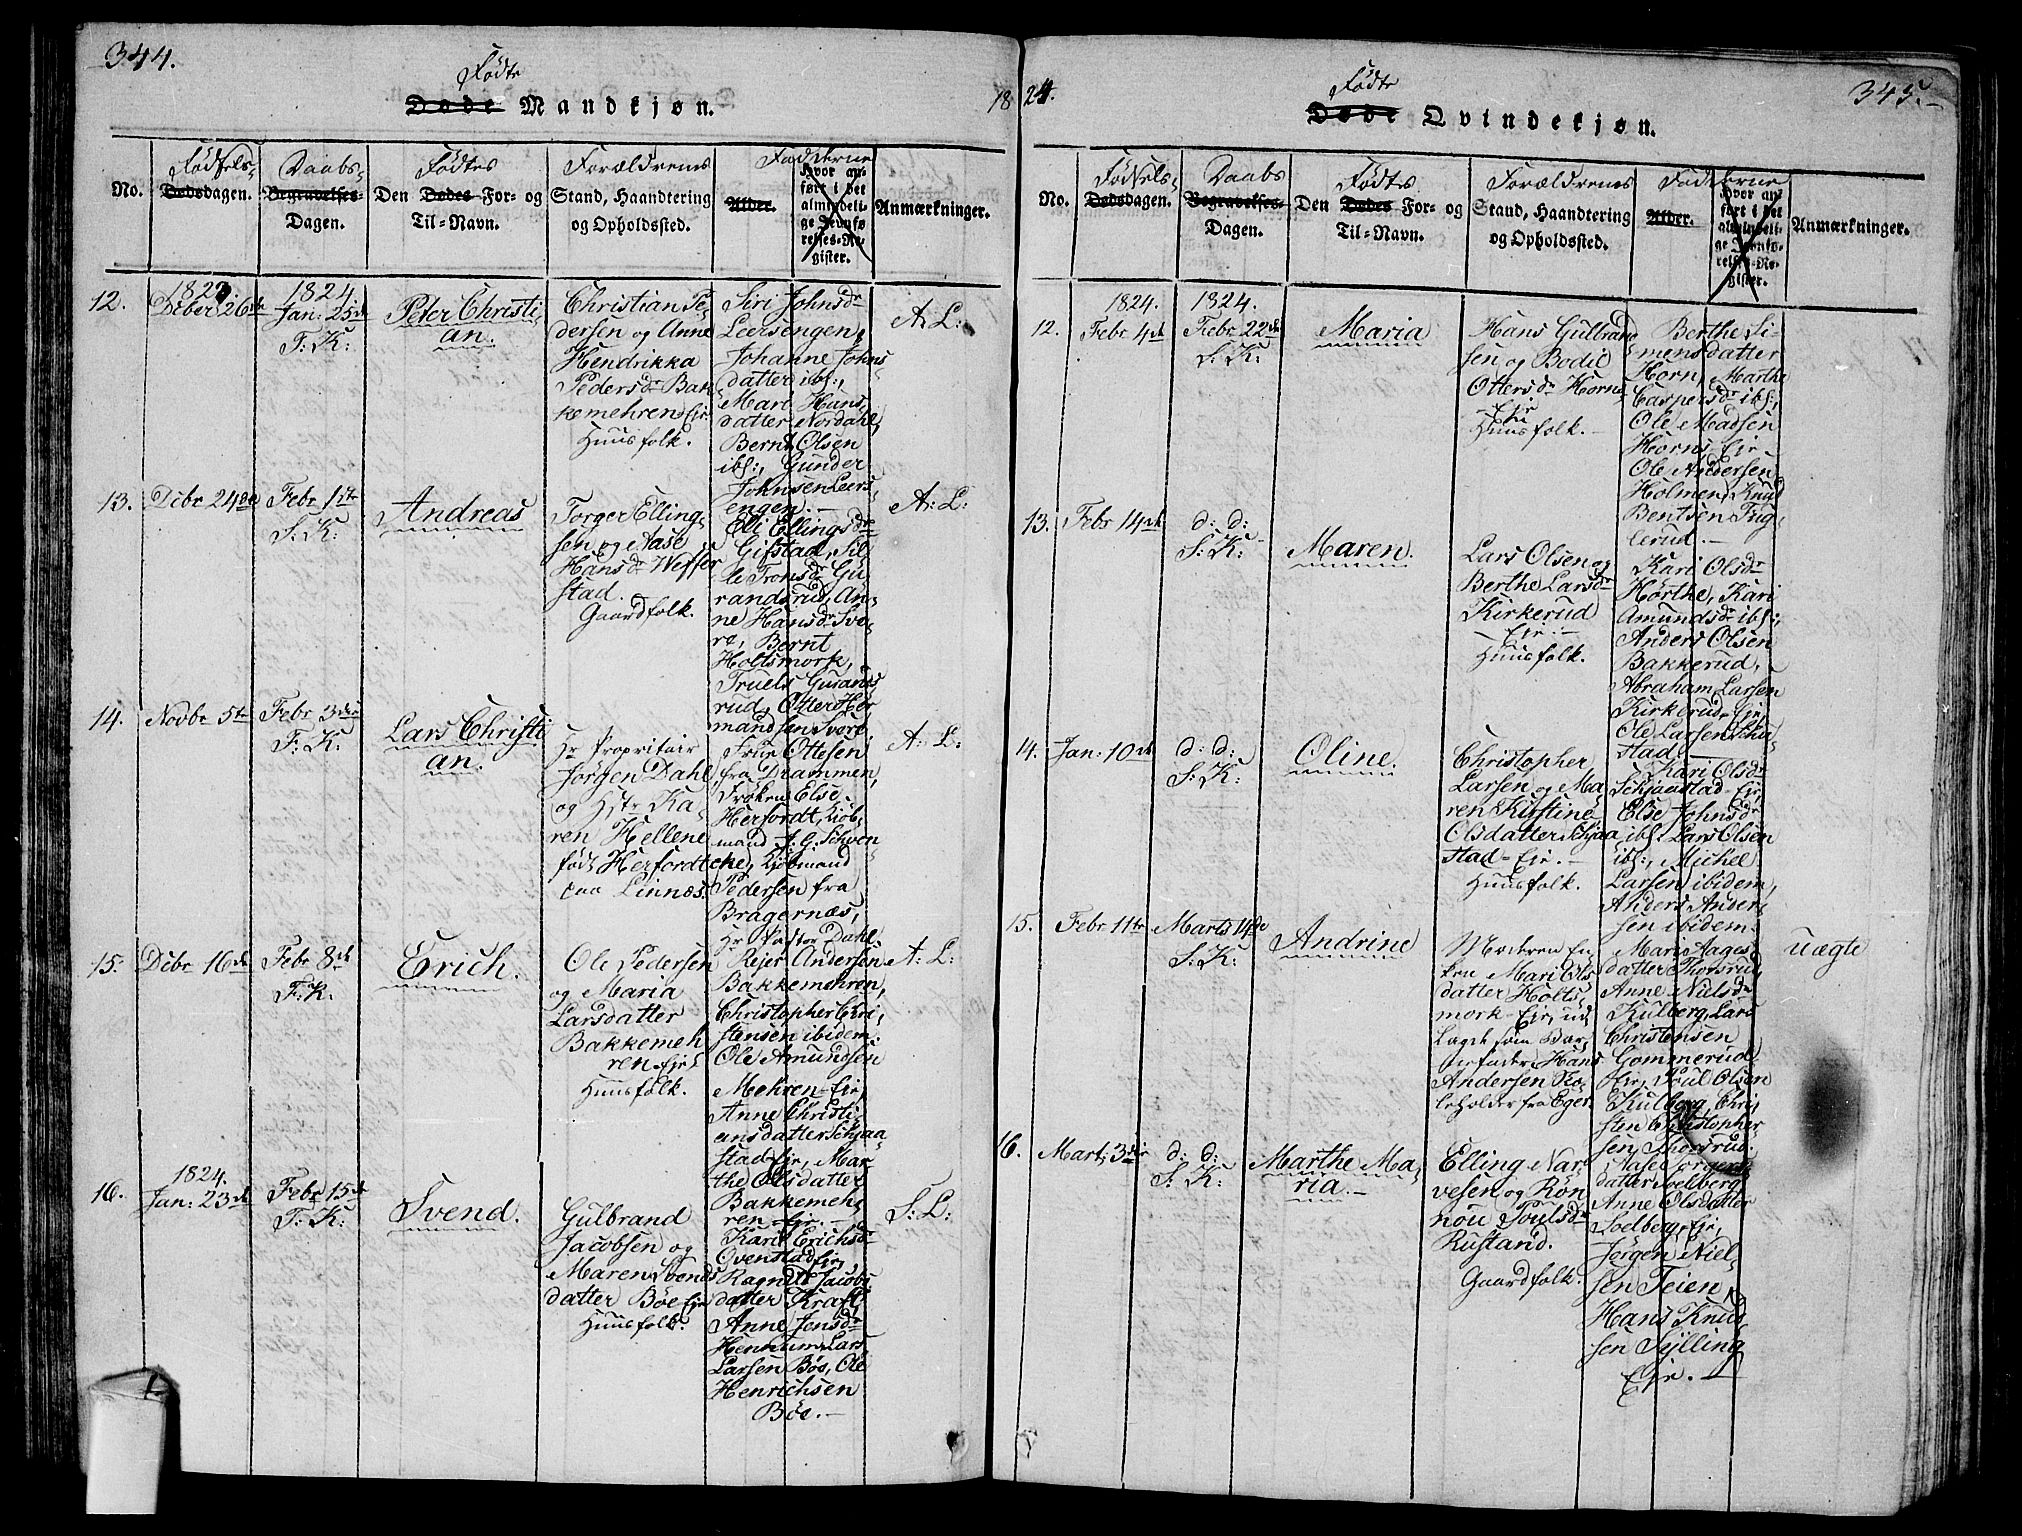 344.
Fødte
Døde Mandkjøn.
18
No.
Fødsels-
Dødsdagen.
Daabs-
Begravelses-
Dagen.
Fødtes
Den Dødes For- og
Til-Navn.
Forældrenes
Stand, Haandtering
og Opholdssted.
Fadderne
Alder.
Hvor an-
ført i det
almindeli-
ge Jevnfø-
relses-Re-
gister.
Anmærkninger.
12.
Dcber 26de
1824
Jan: 25de
T: K:
Peter Christi
an.
Christian Pe
dersen og Anne
Hendrikka
Pedersdr Bak
kemehren Eje
Huusfolk.
Siri Johnsdr
Leersengen,
Johanne Johns
datter ibl:,
Mari Hans
datter Nordahl,
Bernt Olsen
ibl:, Gunder
Johnsen Leers
engen.
A: L:
13.
Dcbr 24de
Febr 1ste
S: K:
Andreas
Torger Elling
sen og Aase
Hansdr Weffer
stad.
Gaardfolk.
Elli Ellingsdr
Gifstad, Sil
le Tromsdr Gu
randsrud, An
ne Hansdr Svo
re, Bernt
Holtsmork,
Truels Gurands
rud, Otter Her
mandsen Svore.
A: L:
14.
Novbr 5te
Febr 3die
T: K:
Lars Christi
an.
Hr Propritair
Jørgen Dahl
og Hstr Ka
ren Hellene
født Herfordt
paa Linnes.
Frue Ottesen
fra Drammen,
Frøken Else
Herfordt, Kiøb
mand J. G. Schven
cke, Kiøbmand
Pedersen fra
Bragernæs,
Hr Pastor Dahl.
A: L:
15.
Dcbr 16de
Febr 8de
T: K.
Erich.
Ole Pedersen
og Maria
Larsdatter
Bakkemeh
ren Eje
Huusfolk.
Rejer Andersen
Bakkemehren,
Christopher Chri
stensen ibidem,
Ole Amundsen
Mehren Eje,
Anne Christi
ansdatter Schjaa
stad Eje, Mar
the Olsdatter
Bakkemeh
ren Eje.
A: L:
16.
1824.
Jan: 23de
Febr 15de
T: K:
Svend.
Gulbrand
Jacobsen og
Maren Svends
datter Bøe Eje
Huusfolk.
Kari Erichsdr
Ovenstad Eje,
Ragnild Jacobs
datter Kraft,
Anne Jensdr
Hennum, Lars
Larsen Bøe, Ole
Henrichsen
Bøe.
S: L:
24.
Fødte
Døde Qvindekjøn.
345.
No.
Fødsels-
Dødsdagen.
Daabs
Begravelses-
Dagen.
Fødtes
Den Dødes For- og
Til-Navn.
Forældrenes
Stand, Haandtering
og Opholdssted.
Fadderne
Alder.
Hvor an-
ført i det
almindeli-
ge Jevnfø-
relses-Re-
gister.
Anmærkninger.
12.
1824.
Febr 4de
1824.
Febr 22de
S: K:
Maria
Hans Gulbrand
sen og Bodil
Ottersdr Horne
Eje
Huusfolk.
Berthe Si
mensdatter
Horn, Marthe
Caspersdr ibl:,
Ole Madsen
Horns Eje
Ole Andersen
Holmen, Knud
Bentsen Trig
lerud.
13.
Febr 14de
d: d:
S: K:
Maren.
Lars Olsen og
Berthe Larsdr
Kirkerud
Eje
Huusfolk.
Kari Olsdr
Hørthe, Kari
Amundsdr ibl:,
Anders Olsen
Bakkerud,
Abraham Larsen
Kirkerud Eje,
Ole Larsen Scha
stad.
14.
Jan: 10de
d: d:
S: K:
Oline.
Christopher
Larsen og Ma
ren Kirstine
Olsdatter Schjaa
stad Eje.
Huusfolk.
Kari Olsdr
Schjaastad Eje,
Else Johnsdr
ibl: Lars Olsen
ibl:, Michel
Larsen ibidem,
Anders Ander
sen ibidem.
15.
Febr 11te
Marts 14de
S: K:
Andrine
Moderen En
ken Mari Ols
datter Holts
mork Eje, ud
lagde som Bar
nefader Hans
Andersen Ko
leholder fra Eger.
Mari Aages
datter Thorsrud,
Anne Nielsdr
Kulberg, Lars
Christensen
Gommerud
Eje, Poul Olsen
Kulberg, Chri
sten Christopher
sen Thorsrud.
Uægte
16.
Marts 3die
d: d:
S: K:
Marthe Ma
ria.
Elling Nar
vesen og Røn
nou Poulsdr
Rustand.
Gaardfolk.
Aase Torgers
datter Soelberg,
Anne Olsdatter
Soelberg Eje,
Jørgen Niel
sen Teien,
Hans Knud
sen Sylling
Eje.